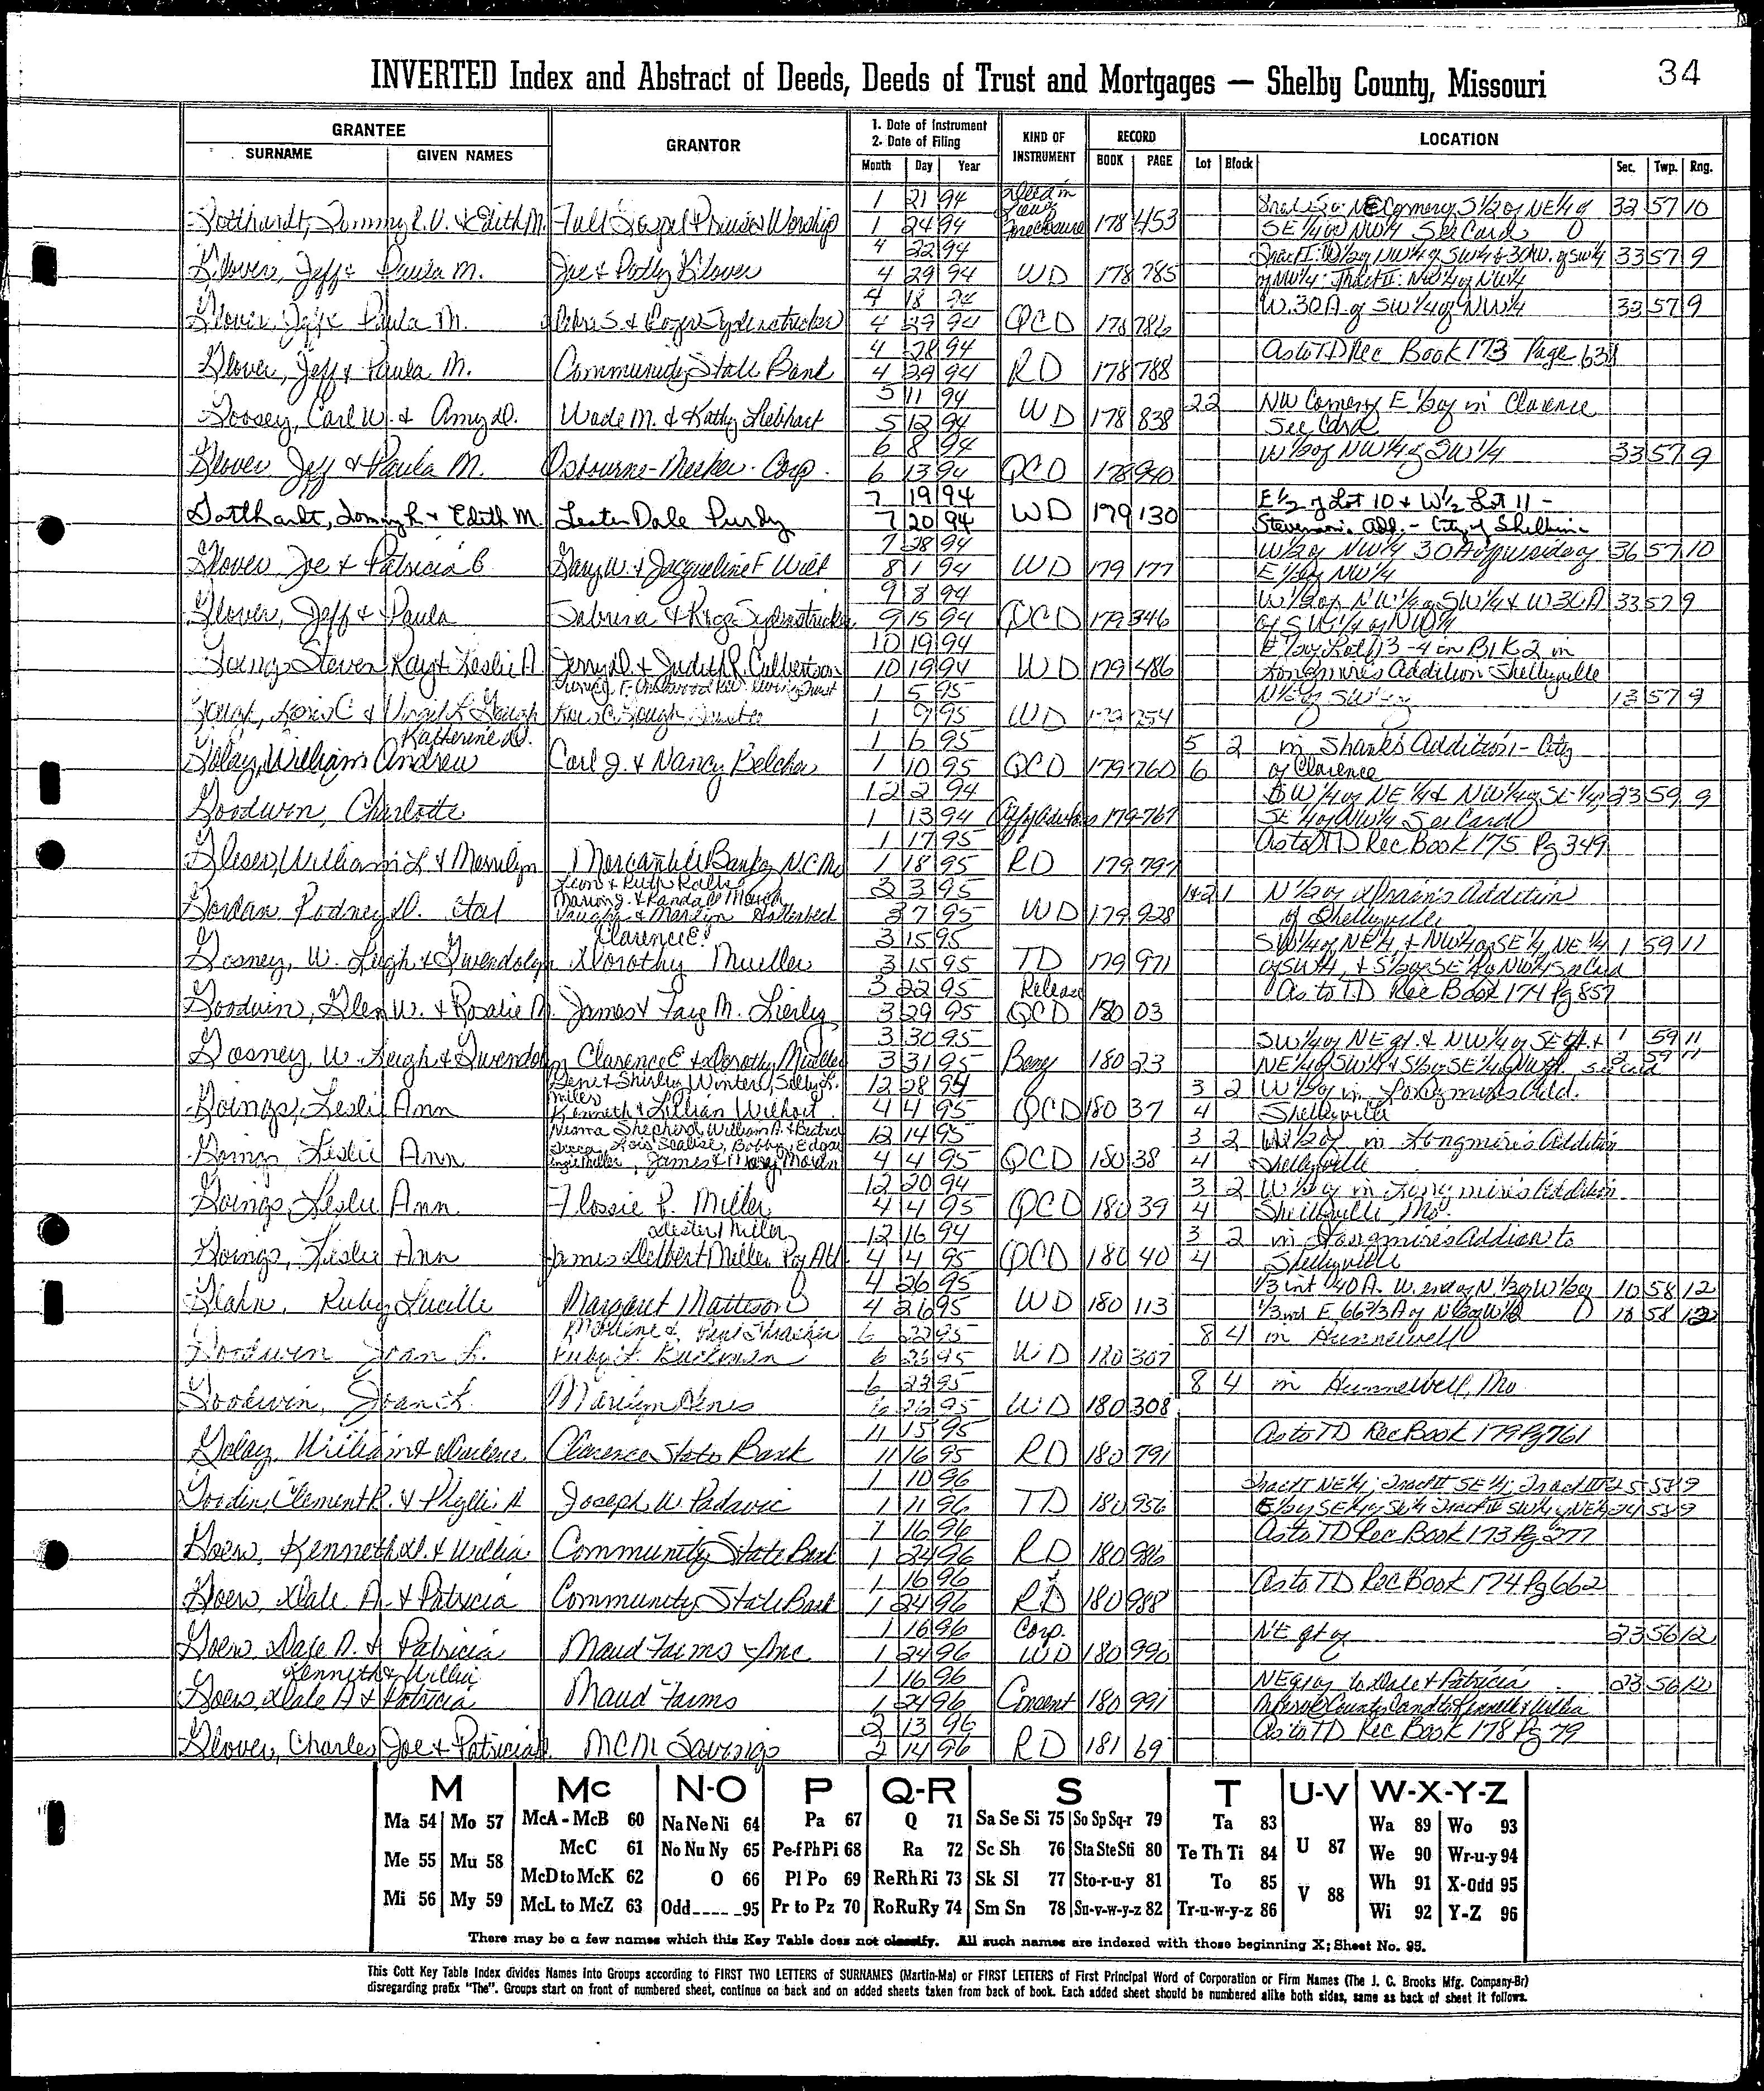 34
INVERTED Index and Abstract of Deeds, Deeds of Trust and Mortgages — Shelby County, Missouri
GRANTEE
SURNAME GIVEN NAMES
GRANTOR
1. Date of Instrument
2. Date of Filing
Month Day Year
KIND OF INSTRUMENT
RECORD
BOOK PAGE
LOCATION
Lot Block Sec. Twp. Rng.
1 21 94 Deed in
Gotthardt, Tommy R. & Edith M. Full Gospel Praise Worship 1 24 94 Foreclosure 178 453 NE Corner of S 1/2 of NE 1/4 of 32 57 10
SE 1/4 NW 1/4 See Card
4 22 94
Glover, Jeff & Paula M. Joe & Patty Glover 4 29 94 WD 178 785 Tract I: W 1/2 of NW 1/4 of SW 1/4 & 30A W. of SW 1/4 33 57 9
of NW 1/4: Tract II: NW 1/4 of NW 1/4
4 18 94
Glover, Jeff & Paula M. 4 29 94 QCD 178 786 W. 30 A of SW 1/4 of NW 1/4 33 57 9
4 28 94
Glover, Jeff & Paula M. Community State Bank 4 29 94 RD 178 788 As to TD Rec Book 173 Page 638
5 11 94
Goosey, Carl W. & Amy D. Wade M. & Kathy Liebhart 5 12 94 WD 178 838 22 NW Corner of E 1/2 of in Clarence
See Card
6 8 94
Glover Jeff & Paula M. Osbourne-Meeker Corp. 6 13 94 QCD 178 940 W 1/2 of NW 1/4 of SW 1/4 33 57 9
7 19 94
Gotthardt, Tommy R. & Edith M. Lester Dale Purdy 7 20 94 WD 179 130 E 1/2 of Lot 10 & W 1/2 Lot 11 -
Stevenson's Add. - City of Shelbina
7 28 94
Glover Joe & Patricia B. Gary W. & Jacqueline F Wilt 8 1 94 WD 179 177 W 1/2 of NW 1/4 30 A off side of 36 57 10
E 1/2 of NW 1/4
9 8 94
Glover, Jeff & Paula Sabrina & 9 15 94 QCD 179 346 W 1/2 of NW 1/4 of SW 1/4 & W 30 A 33 57 9
of SW 1/4 of NW 1/4
10 19 94
Goings Steven Ray & Leslie A. Jerry D. & Judith R. Culbertson 10 19 94 WD 179 486 E 1/2 of Lots 3-4 in Blk 2 in
Longmire's Addition Shelbyville
1 5 95
Gough, & Virgil L. Gough 1 9 95 WD 179 754 N 1/2 of SW 1/4 13 57 9
Katherine D. 1 6 95
Golay, William Andrew Carl J. & Nancy Belcher 1 10 95 QCD 179 760 5 6 2 in Shanks Addition - City
of Clarence
12 2 94
Goodwin, Charlotte 1 13 94 179 767 SW 1/4 of NE 1/4 & NW 1/4 of SE 1/4 23 59 9
SE 1/4 of NW 1/4 See Card
1 17 95
Glieser, William L & Merrilyn Mercantile Bank of N.C. Mo 1 18 95 RD 179 797 As to TD Rec Book 175 Pg 349
Leon & Ruth Ralls 2 3 95
Gordan Rodney D. Etal 3 7 95 WD 179 928 1&2 1 N 1/2 of Addition
of Shelbyville
Clarence E. 3 15 95
Gosney, W. Leigh & Gwendolyn Dorothy Mueller 3 15 95 TD 179 971 SW 1/4 of NE 1/4 & NW 1/4 of SE 1/4, NE 1/4 1 59 11
of SW 1/4, & S 1/2 of SE 1/4 of NW 1/4 See Card
3 22 95 Release
Goodwin, Glen W. & Rosalie M. James & Faye M. Lierly 3 29 95 QCD 180 03 As to T.D Rec Book 174 Pg 857
3 30 95
Gosney, W. Leigh & Gwendolyn Clarence E & Dorothy Mueller 3 31 95 180 23 SW 1/4 of NE qt. & NW 1/4 of SE qt & 1 59 11
NE 1/4 of SW 1/4 & S 1/2 of SE 1/4 of NW qt. See Card 2 59 11
Gene & Shirley Winters, Sally L. 12 28 94
Miller
Goings, Leslie Ann Kenneth & Lillian Wilhoit 4 4 95 QCD 180 37 3 4 2 W 1/2 of in Longmires Add.
Shelbyville
12 14 95
Goings Leslie Ann 4 4 95 QCD 180 38 3 4 2 W 1/2 of in Longmire's Addition
Shelbyville
12 20 94
Goings, Leslie Ann Flossie P. Miller 4 4 95 QCD 180 39 3 4 2 W 1/2 of in Longmire's Addition
Shelbyville Mo.
Lester Miller 12 16 94
Goings, Leslie Ann James Delbert Miller Poj Att. 4 4 95 QCD 180 40 3 4 2 in Longmire's Addion to
Shelbyville
4 26 95
Glahn, Ruby Lucille Margaret Matteson 4 26 95 WD 180 113 1/3 int 40 A. W. end of N. 1/2 of W 1/2 of 10 58 12
1/3 int E 66 2/3 A of N 1/2 of W 1/2 10 58 12
6 22 95
Goodwin Joan L. 6 26 95 WD 180 307 8 4 in Hunnewell
6 23 95
Goodwin, Joan L. 6 26 95 WD 180 308 8 4 in Hunnewell, Mo
11 15 95
Golay, William & Darlene Clarence State Bank 11 16 95 RD 180 791 As to TD Rec Book 179 Pg 761
1 10 96
Goodin, Clement R. & Phyllis A Joseph W. Padavic 1 11 96 TD 180 956 Tract I NE 1/4; Tract II SE 1/4; Tract III 25 58 9
E 1/2 of SE 1/4 of SW 1/4 Tract IV SW 1/4 of NE 1/4 24 58 9
1 16 96
Goen, Kenneth D. & Willia Community State Bank 1 24 96 RD 180 986 As to TD Rec Book 173 Pg 277
1 16 96
Goen, Dale A. & Patricia Community State Bank 1 24 96 RD 180 988 As to TD Rec Book 174 Pg 662
1 16 96 Corp.
Goen Dale A. & Patricia Maud Farms Inc. 1 24 96 WD 180 990 NE qt of 23 56 12
Kenneth & Willia 1 16 96
Goen, Dale A & Patricia Maud Farms 1 24 96 Consent 180 991 NE qt of to Dale & Patricia 23 56 12
Monroe County Land to Kenneth & Willia
2 13 96
Glover, Charles Joe & Patricia B. MCM Savings 2 14 96 RD 181 69 As to TD Rec Book 178 Pg 79
M Mc N-O P Q-R S T U-V W-X-Y-Z
Ma 54 Mo 57 McA - McB 60 Na Ne Ni 64 Pa 67 Q 71 Sa Se Si 75 So Sp Sq-r 79 Ta 83 U 87 Wa 89 Wo 93
Me 55 Mu 58 McC 61 No Nu Ny 65 Pe-f Ph Pi 68 Ra 72 Sc Sh 76 Sta Ste Sti 80 Te Th Ti 84 We 90 Wr-u-y 94
McD to McK 62 O 66 Pl Po 69 Re Rh Ri 73 Sk Sl 77 Sto-r-u-y 81 To 85 V 88 Wh 91 X-Odd 95
Mi 56 My 59 McL to McZ 63 Odd---- -95 Pr to Pz 70 Ro Ru Ry 74 Sm Sn 78 Su-v-w-y-z 82 Tr-u-w-y-z 86 Wi 92 Y-Z 96
There may be a few names which this Key Table does not classify. All such names are indexed with those beginning X; Sheet No. 95.
This Cott Key Table Index divides Names into Groups according to FIRST TWO LETTERS of SURNAMES (Martin-Ma) or FIRST LETTERS of First Principal Word of Corporation or Firm Names (The J. C. Brooks Mfg. Company-Br)
disregarding prefix "The". Groups start on front of numbered sheet, continue on back and on added sheets taken from back of book. Each added sheet should be numbered alike both sides, same as back of sheet it follows.